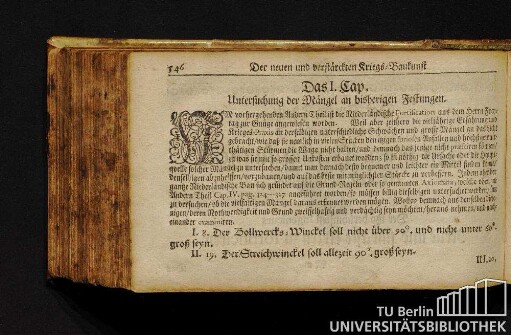 546
Der neuen und verstärckten Kriegs-Baukunst
Das I. Cap.
Untersuchung der Mängel an bisherigen Festungen.
IM vorhergehenden Andern Theil ist die Niederländische Fortification aus dem Herrn
zur Gnüge angewiesen worden. Weil aber zeithero die vielfältige Erfahrung und
Krieges-Praxis an derselbigen unterschiedliche Schwachen und grosse Mängel an das Licht
gebracht, wie daß sie nemlich in vielen Stücken den
thätigen Stürmen die Wage nicht halten, und demnach das jenige nicht praestiren
was sie zu so grossen Unkosten erbauet worden; so ist nöthig die Ursache oder die
quelle solcher Mängel zu untersuchen, damit man hernach desto bequemer und leichter ein Mittel finden
denselbigen abzuhelffen, vorzubauen, und auf das beste mit möglichster Stärcke zu versehen. Indem aber die
gantze Niederländische Bau sich gründet auf die Grund-Regeln oder so genanten Axiomata, welche oben
Andern Theil Cap. IV. pag. 314--317. angeführet worden, so müssen billig dieselbigen untersuchet werden, um
zu versuchen, ob die vielfältigen Mängel daraus erkennet werden mögen. Wollen demnach aus denselben
nigen, deren Nothwendigkeit und Grund zweiffelhafftig und verdächtig seyn möchten, heraus nehmen, und
einander examiniren.
I. 8. Der Bollwercks-Winckel soll nicht über 90°. und nicht unter 60°.
groß seyn.
II. 19. Der Streichwinckel soll allezeit 90°. groß seyn.
III. 20.
TU Berlin
UNIVERSITÄTSBIBLIOTHEK